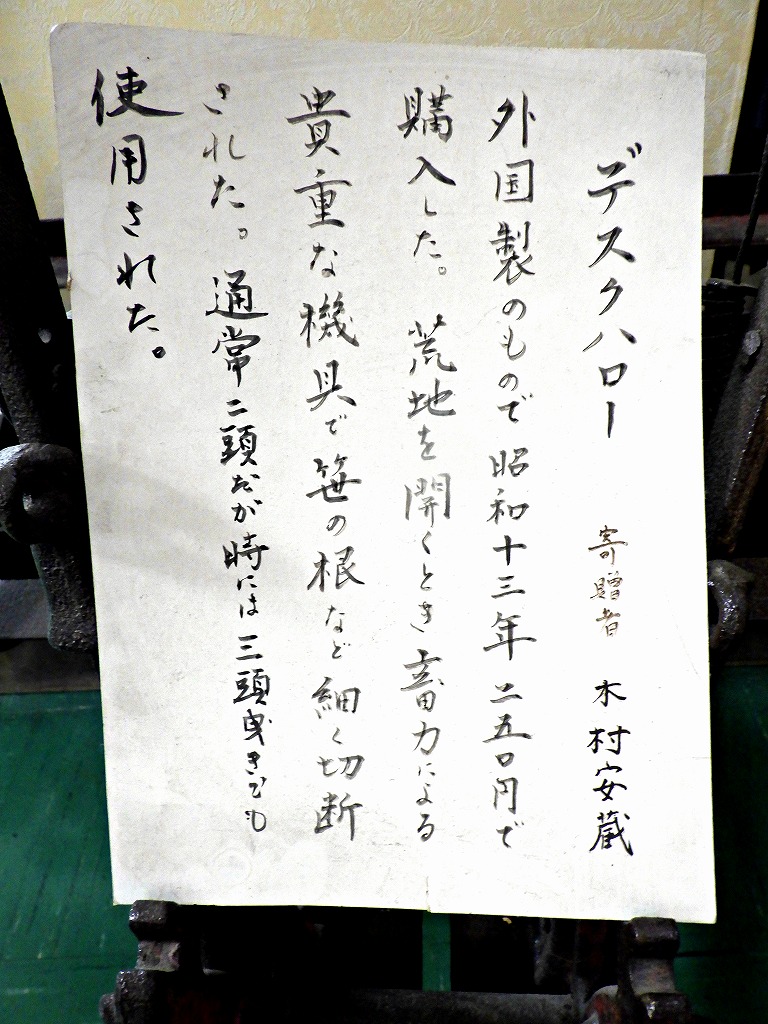 デスクハロー 寄贈者 木村安蔵
外国製のもので昭和十三年二五〇円で
購入した。荒地を開くとき畜力による
貴重な機具で笹の根など細く切断
された。通常二頭だが時には三頭曳きでも
使用された。